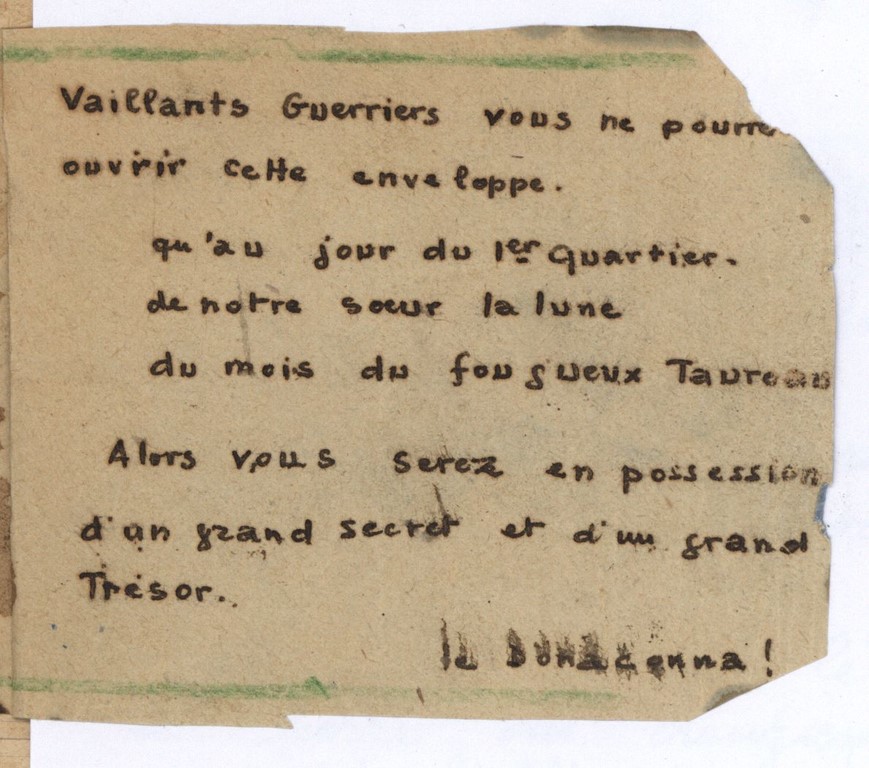 Vaillants Guerriers vous ne pourre
ouvrir cette enveloppe.
qu'au jour du 1er Quartier.
de notre sœur la lune
du mois du fougueux Taureau
Alors vous serez en possession
d'un grand secret et d'un grand
Trésor.
!